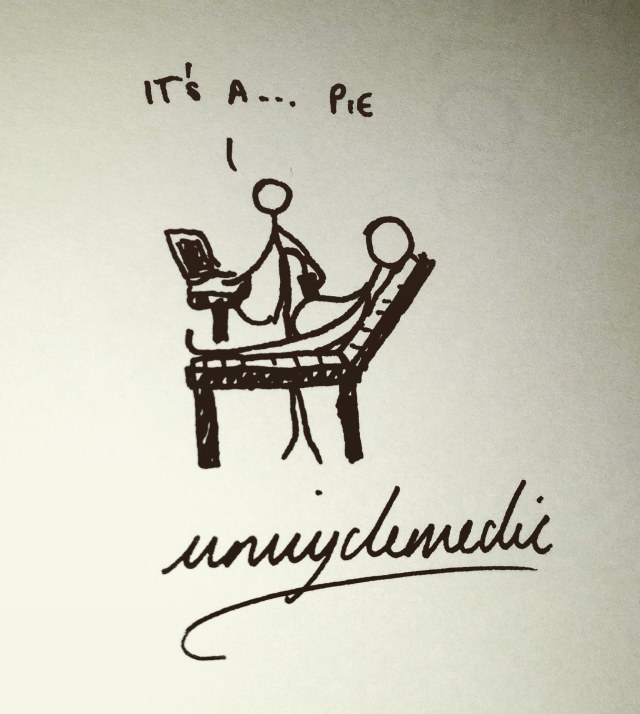 IT'S A... PIE
unicyclemedic